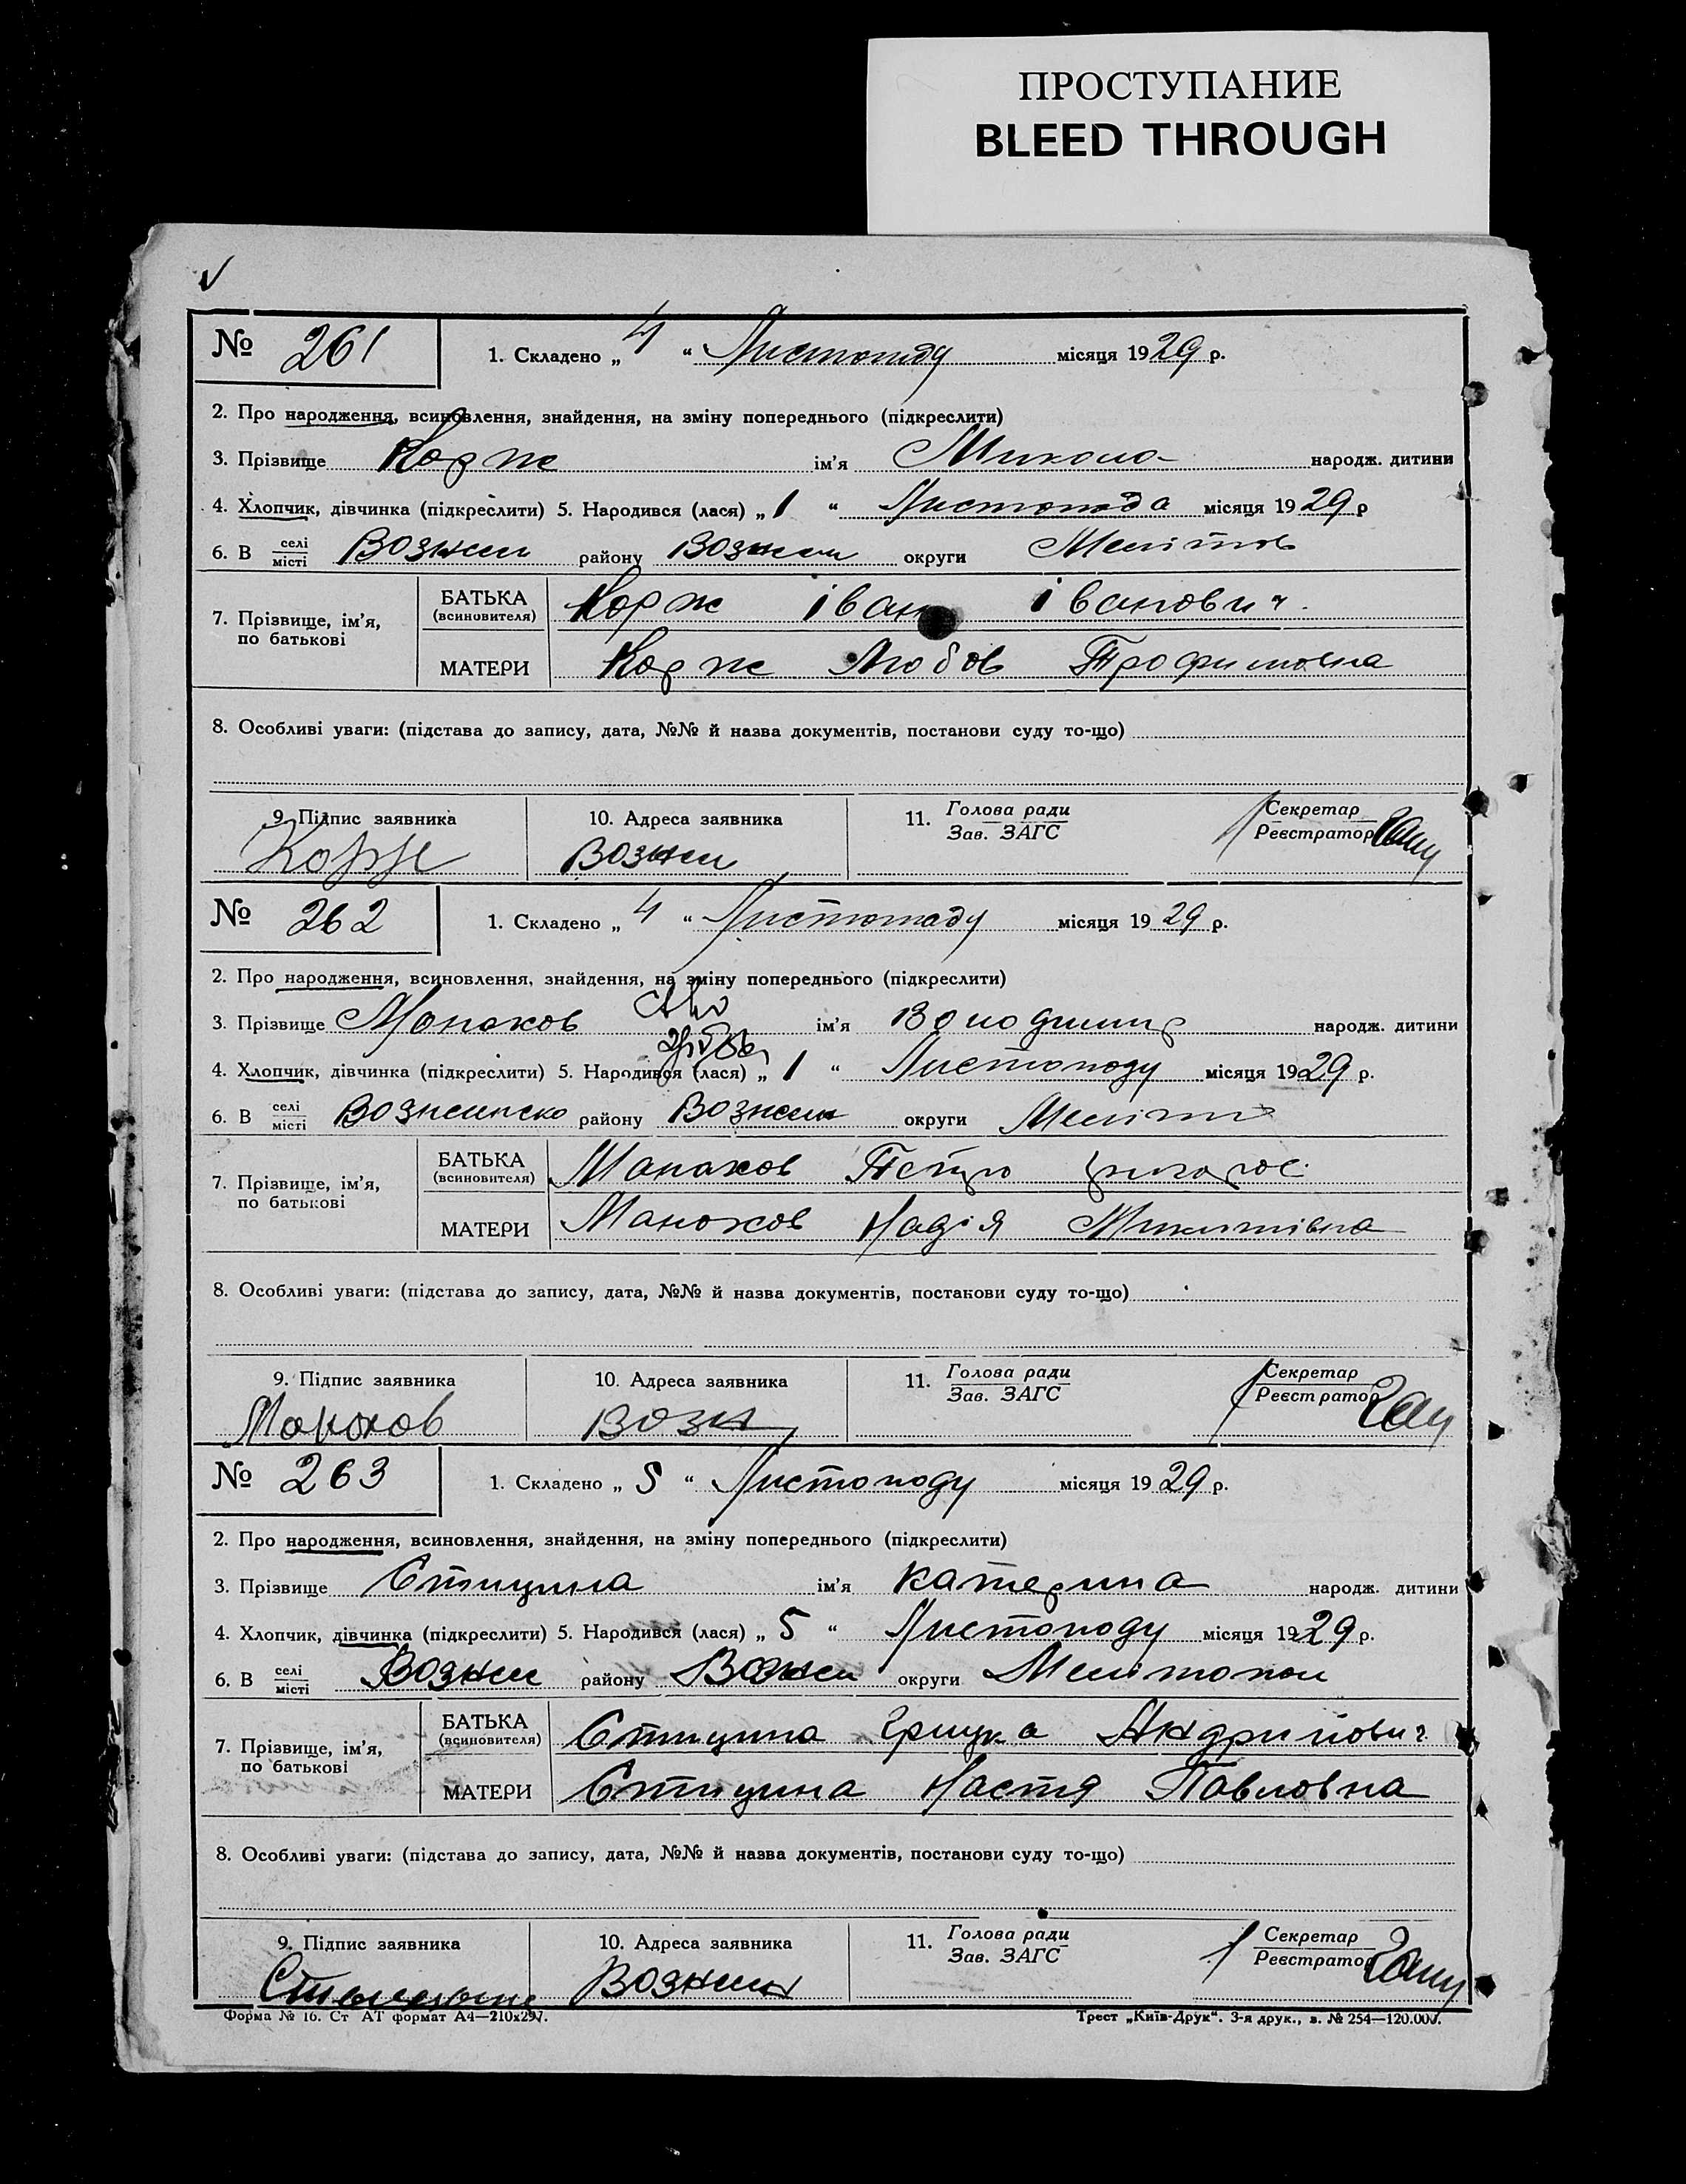 ПРОСТУПАНИЕ
BLEED THROUGH
№ 261 1. Складено „ 4 “ Листопаду місяця 1929 р.
2. Про народження, всиновлення, знайдення, на зміну попереднього (підкреслити)
3. Прізвище Корж ім’я Микола народж. дитини
4. Хлопчик, дівчинка (підкреслити) 5. Народився (лася) „ 1 “ Листопада місяця 1929 р
6. В селі місті Вознесен району Вознесен округи Мелітов
7. Прізвище, ім’я, по батькові
БАТЬКА (всиновителя) Корж Іван Іванович.
МАТЕРИ Корж Любов Трофимовна
8. Особливі уваги: (підстава до запису, дата, №№ й назва документів, постанови суду то-що)
9. Підпис заявника 10. Адреса заявника 11. Голова ради Зав. ЗАГС Секретар Реєстратор
Корж Вознесен
№ 262 1. Складено „ 4 “ Листопаду місяця 1929 р.
2. Про народження, всиновлення, знайдення, на зміну попереднього (підкреслити)
3. Прізвище Манаков ім’я Володимир народж. дитини
4. Хлопчик, дівчинка (підкреслити) 5. Народився (лася) „ 1 “ Листопаду місяця 1929 р.
6. В селі місті Вознесенско району Вознесен округи Меліт
7. Прізвище, ім’я, по батькові
БАТЬКА (всиновителя) Манаков Петро
МАТЕРИ Манаков Надія Микитівна
8. Особливі уваги: (підстава до запису, дата, №№ й назва документів, постанови суду то-що)
9. Підпис заявника 10. Адреса заявника 11. Голова ради Зав. ЗАГС Секретар Реєстратор
Манаков Возн
№ 263 1. Складено „ 5 “ Листопаду місяця 1929 р.
2. Про народження, всиновлення, знайдення, на зміну попереднього (підкреслити)
3. Прізвище Стицина ім’я Катерина народж. дитини
4. Хлопчик, дівчинка (підкреслити) 5. Народився (лася) „ 5 “ Листопаду місяця 1929 р.
6. В селі місті Вознесе району Вознесе округи Мелітопол
7. Прізвище, ім’я, по батькові
БАТЬКА (всиновителя) Стицина Грицка Андрийович
МАТЕРИ Стицина Настя Павловна
8. Особливі уваги: (підстава до запису, дата, №№ й назва документів, постанови суду то-що)
9. Підпис заявника 10. Адреса заявника 11. Голова ради Зав. ЗАГС Секретар Реєстратор
Вознесен
Форма № 16. Ст АТ формат А4—210х297. Трест „Київ-Друк“. 3-я друк., з. № 254—120.000.